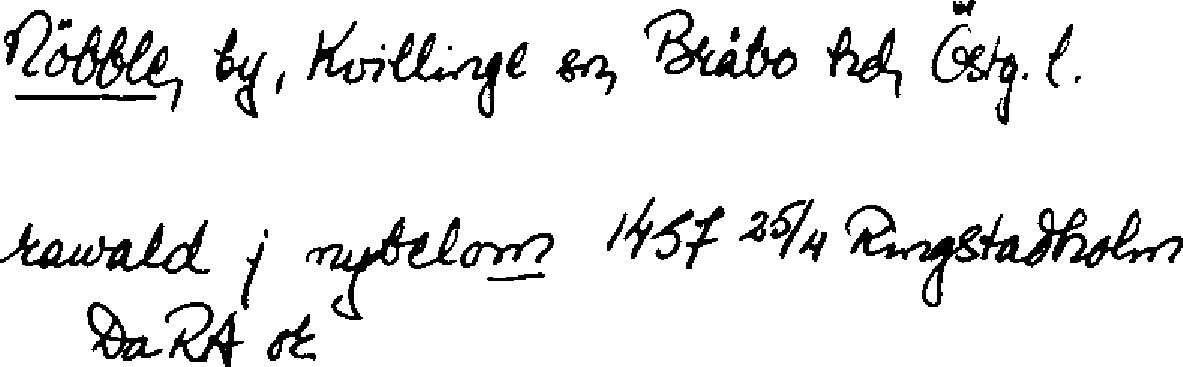 Nöbble, by, Kvillinge sn, Bråbo hd, Östg. l.
rawald j nybelom 1457 25/4 Ringstadholm
DaRA or